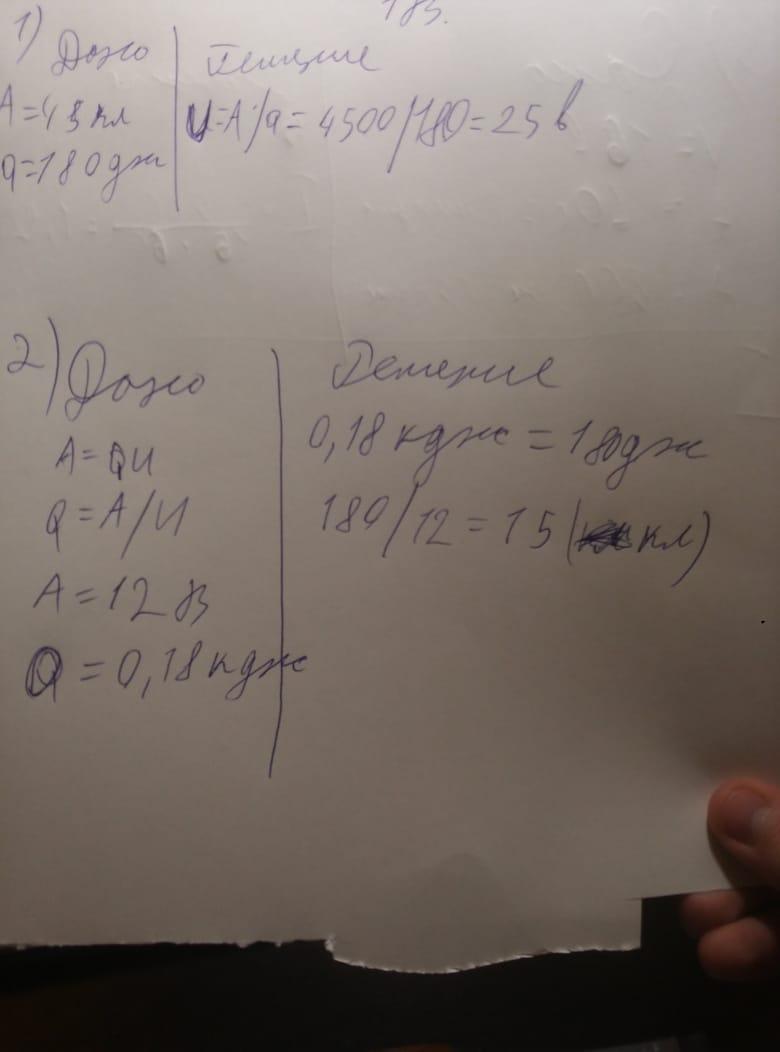 1) Дано Решение
A=4,5 кл U=A/q=4500/180=25 в
q=180 дж
2) Дано Решение
A=QU 0,18 кдж = 180дж
Q=A/U 180/12=15 (кл)
A=12 В
Q=0,18 кдж